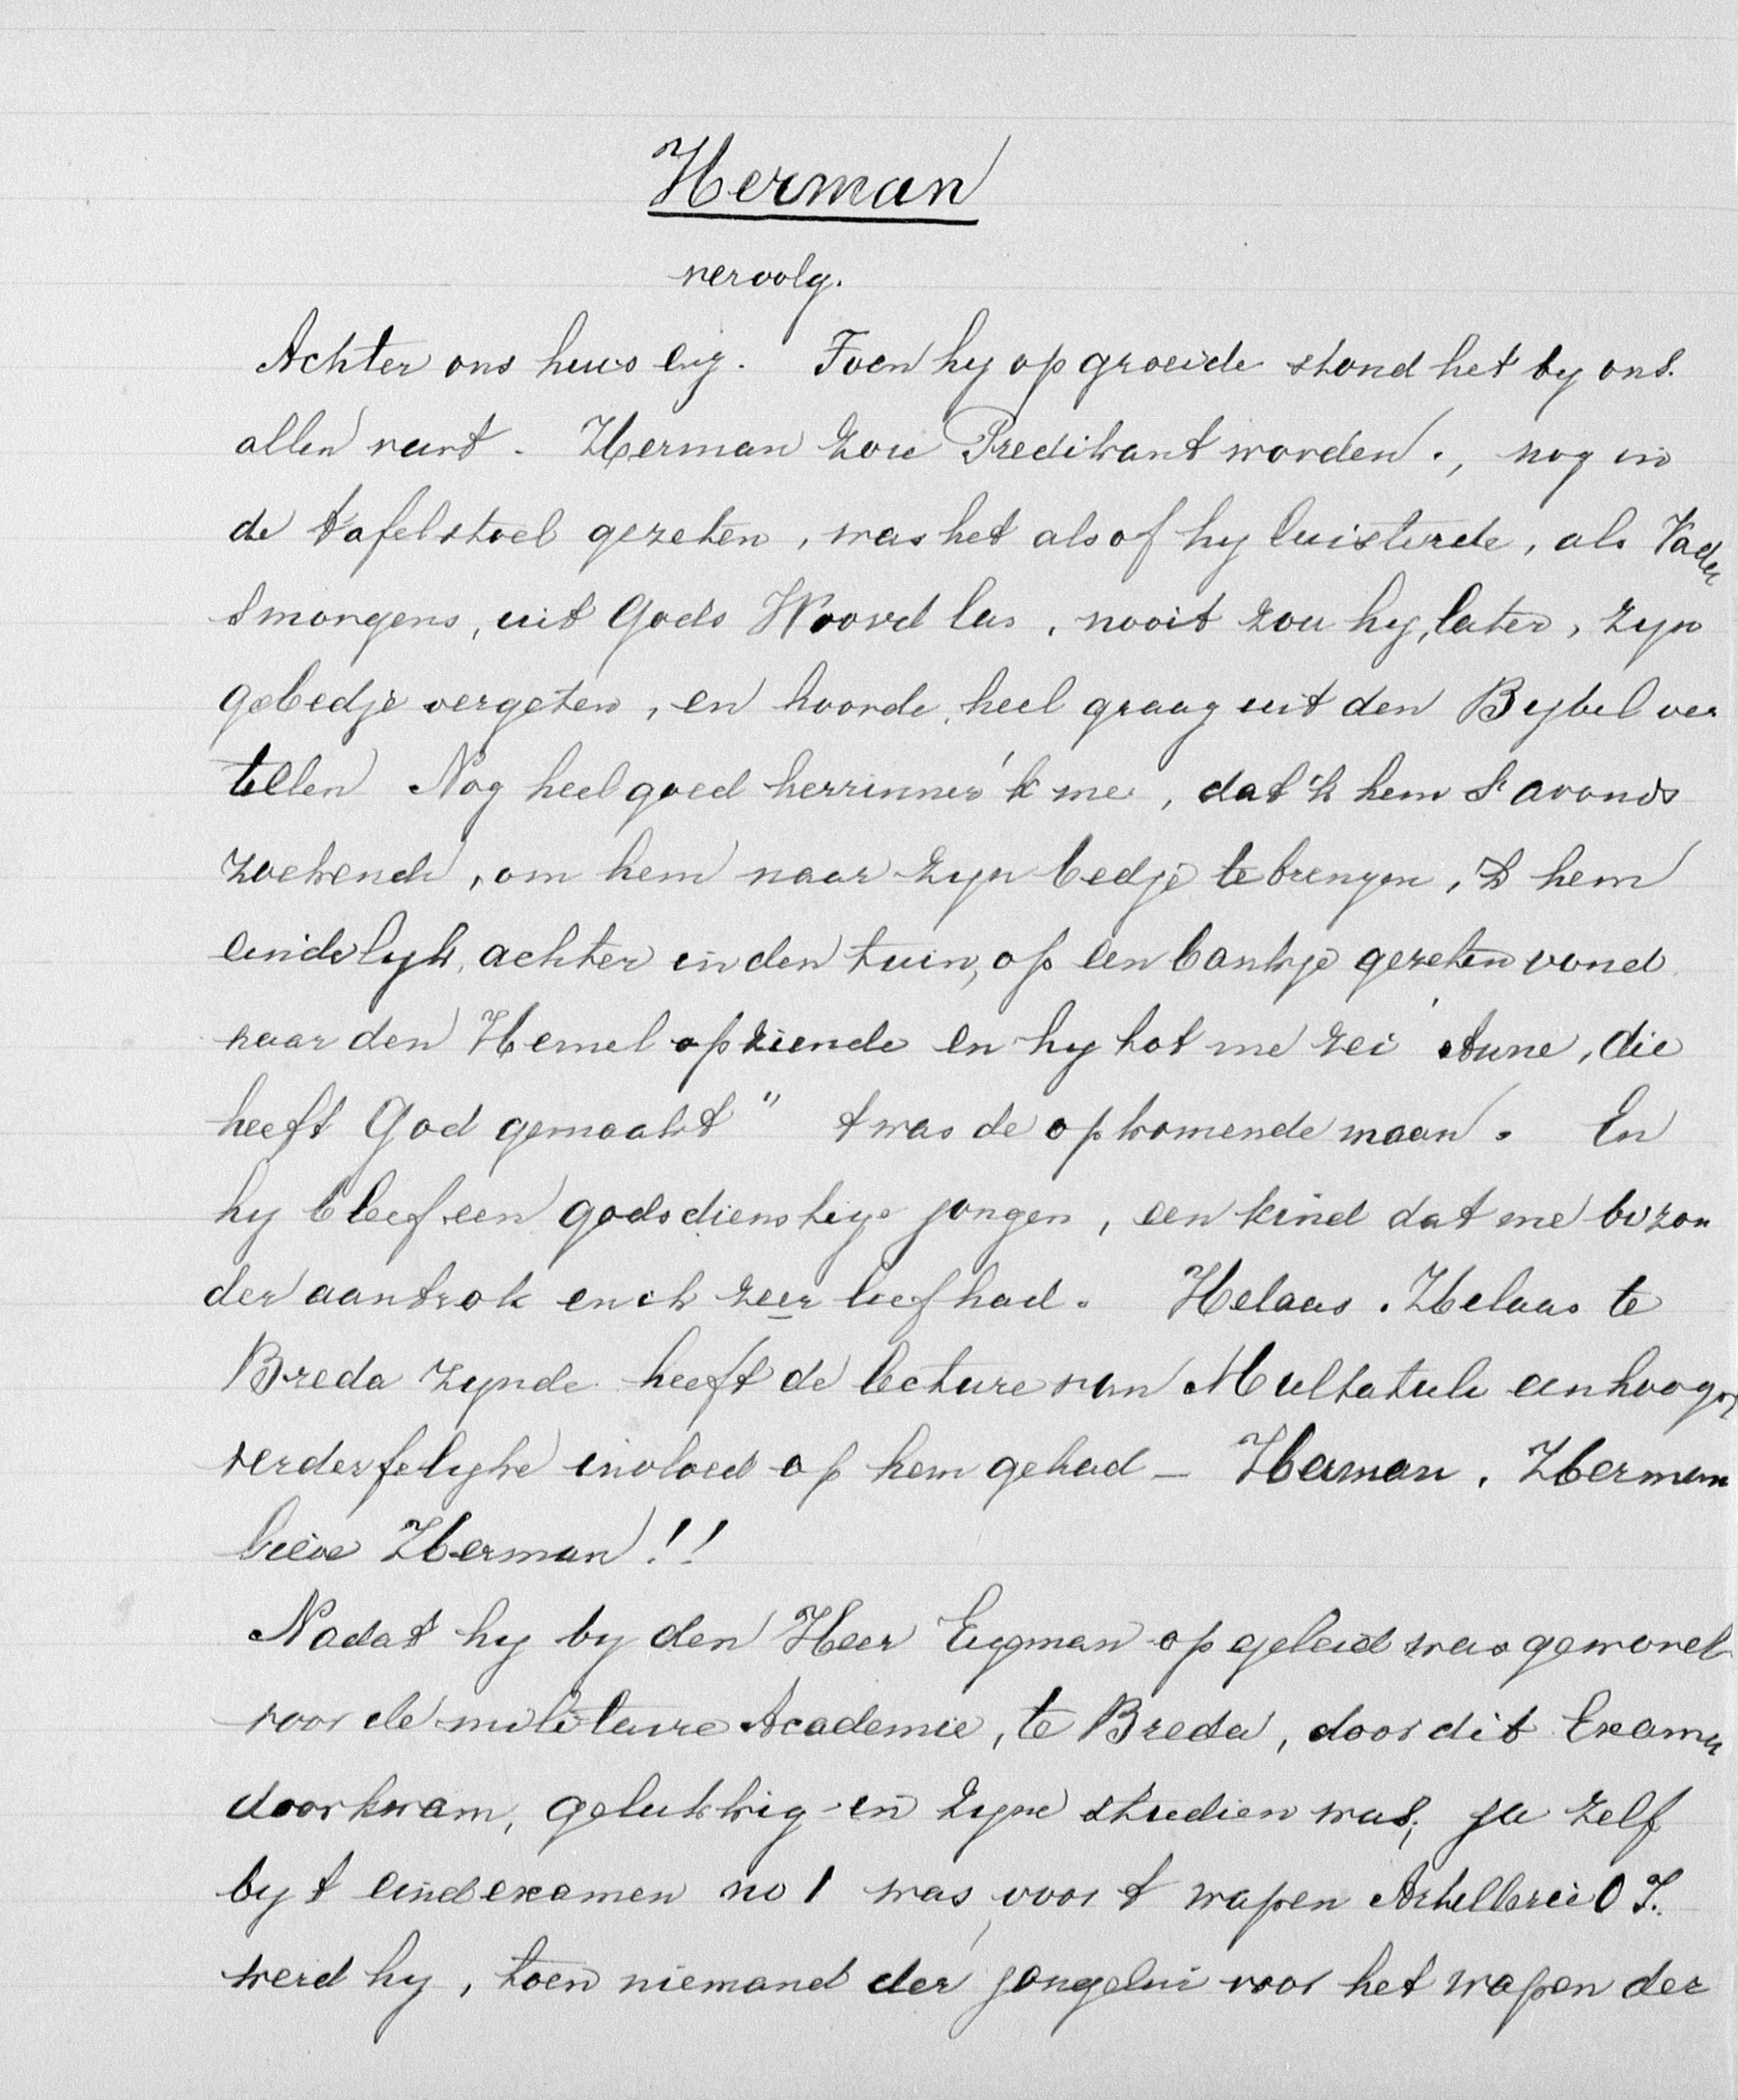 Herman
vervolg.
Achter ons huis lig. Toen hy opgroeide stond het by ons
allen vast. Herman zou Predikant worden., nog in
de tafelstoel gezeten, was het alsof hy luisterde, als Vader
smorgens, uit Gods Woord las, nooit zou hy, later, zyn
gebedje vergeten, en hoorde, heel graag uit den Bybel ver
tellen Nog heel goed herrinner 'k me, dat 'k hem s'avonds
zoekende, om hem naar zyn bedje te brengen, 'k hem
eindelyk, achter in den tuin, op een bankje gezeten vond
naar den Hemel opziende en hy tot me zei 'Anne, die
heeft God gemaakt" t was de opkomende maan. En
hy bleef een godsdienstige jongen, een kind dat me bizon
der aantrok en ik zeer lief had. Helaas. Helaas te
Breda zynde heeft de lecture van Multatuli een hoogst
verderfelyke invloed op hem gehad - Herman, Herman
lieve Herman!!
Nadat hy by den Heer Eygman opgeleid was geword
voor de militaire Academie, te Breda, door dit Examen
doorkwam, gelukkig in zyne studien was, ja zelf
by t eindexamen no 1 was voor t wapen Artellerie O I.
werd hy, toen niemand der jongelui voor het wapen der